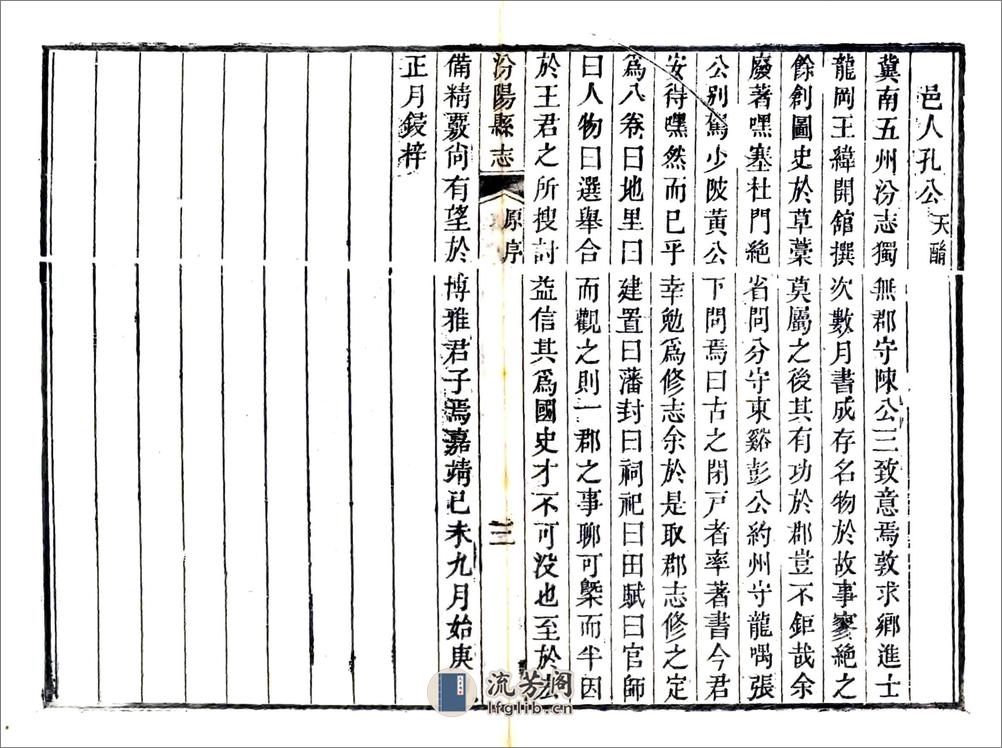 邑人孔公天胤
冀南五州汾志獨無郡守陳公三致意焉敦求鄉進士
龍岡王緯開舘撰次數月書成存名物於故事寥絶之
餘創圖史於草藁莫屬之後其有功於郡豈不鉅哉余
廢著嘿塞杜門絶省問分守東谿彭公約州守龍喁張
公別駕少陂黃公下問焉曰古之閉戸者率著書今君
安得嘿然而已乎幸勉爲修志余於是取郡志修之定
爲八卷曰地里曰建置曰藩封曰祠祀曰田賦曰官師
曰人物曰選舉合而觀之則一郡之事聊可槩而半因
於王君之所搜討益信其爲國史才不可没也至於
汾陽縣志
原序
三
備精覈尙有望於博雅君子焉嘉靖己未九月始庚
正月鋟梓
流芳阁
lfglib.cn